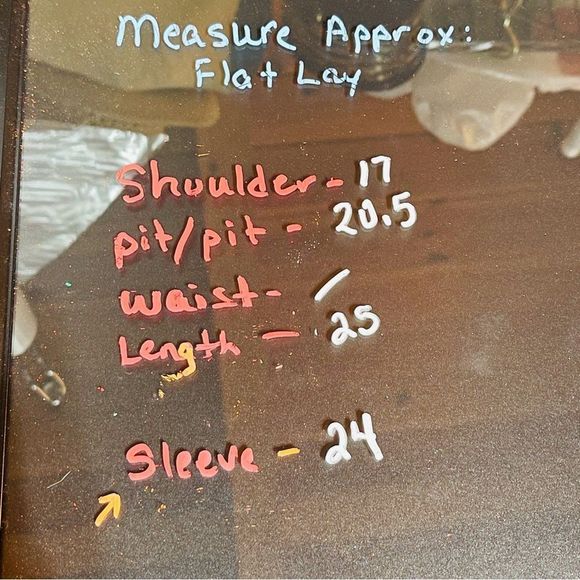 Measure Approx:
Flat Lay
Shoulder - 17
pit/pit - 20.5
waist - /
Length - 25
Sleeve - 24